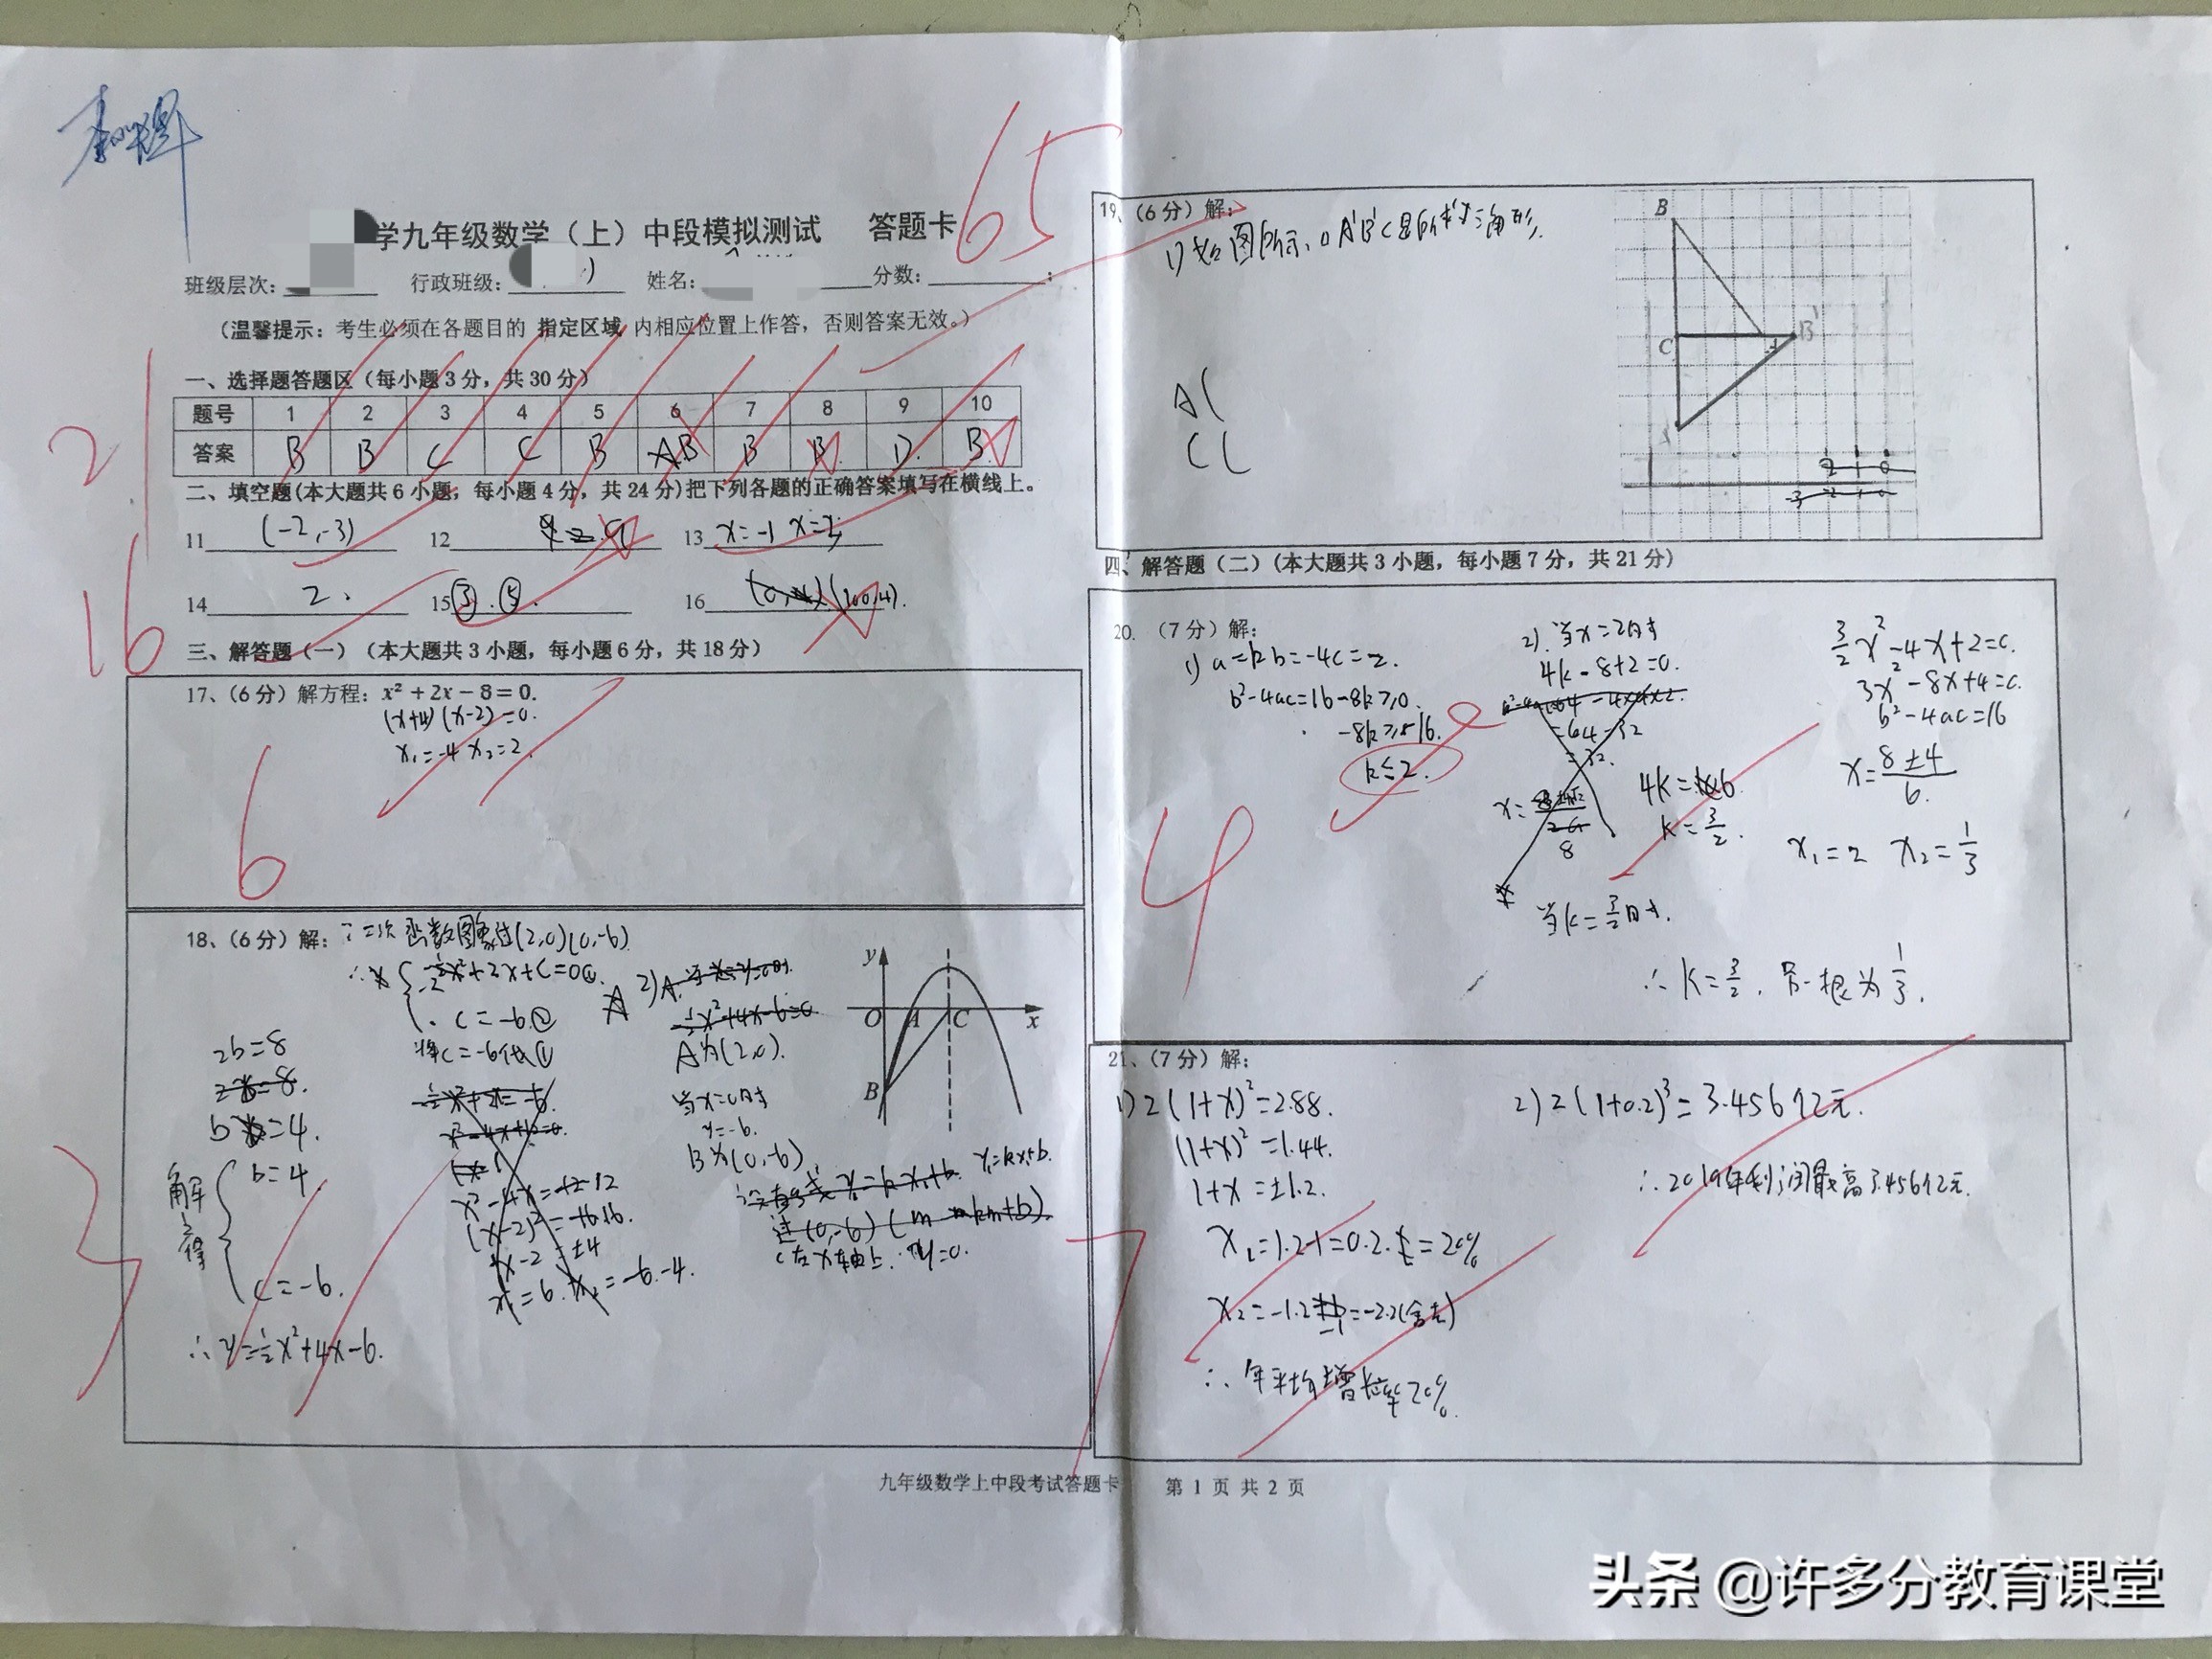 65
学九年级数学（上）中段模拟测试 答题卡
班级层次：
行政班级：
姓名：
分数：
（温馨提示：考生必须在各题目的 指定区域 内相应位置上作答，否则答案无效。）
一、选择题答题区（每小题3分，共30分）
题号 1 2 3 4 5 6 7 8 9 10
答案 B B C C B AB B B. D. B.
21
二、填空题(本大题共6小题，每小题4分，共24分)把下列各题的正确答案填写在横线上。
11 (-2,-3) 12 13 x=-1 x=3
14 2. 15 ③.⑤. 16 (100,4).
16
三、解答题（一）（本大题共3小题，每小题6分，共18分）
17、（6分）解方程：x²+2x-8=0.
(x+4)(x-2)=0.
x₁=-4 x₂=2.
6
18、（6分）解：∵二次函数图象过(2,0)(0,-6)
-½x²+2x+c=0①.
c=-6②
将c=-6代入①
2b=8
b=4.
解得
b=4
c=-6.
∴y=-½x²+4x-6.
3
x²-4x=-12
(x-2)²=16.
x-2=±4
x₁=6. x₂=-6.-4.
2)A.
A为(2,0).
当x=0时
y=-6.
B为(0,-6)
y₁=kx+b.
C在x轴上.∴y=0.
y
O A C x
B
19、（6分）解：
1)如图所示，△A'B'C是所求三角形.
A(
C(
B
C
A
B'
A'
2 1 0
-3 -2 -1 0
四、解答题（二）（本大题共3小题，每小题7分，共21分）
20. （7分）解：
1) a=k b=-4 c=2.
b²-4ac=16-8k≥0.
-8k≥-16.
k≤2.
4
2).当x=2时
4k-8+2=0.
=64-32
=32.
8
4k=6
k=3/2.
当k=3/2时.
3/2x²-4x+2=0.
3x²-8x+4=0.
b²-4ac=16
x=8±4/6.
x₁=2 x₂=1/3
∴k=3/2. 另一根为1/3.
21、（7分）解：
1) 2(1+x)²=2.88.
(1+x)²=1.44.
1+x=±1.2.
x₁=1.2-1=0.2.=20%
x₂=-1.2-1=-2.2(舍去)
∴年平均增长率20%.
7
2) 2(1+0.2)³=3.456亿元.
∴2019年利润最高3.456亿元.
九年级数学上中段考试答题卡 第 1 页 共 2 页
头条 @许多分教育课堂